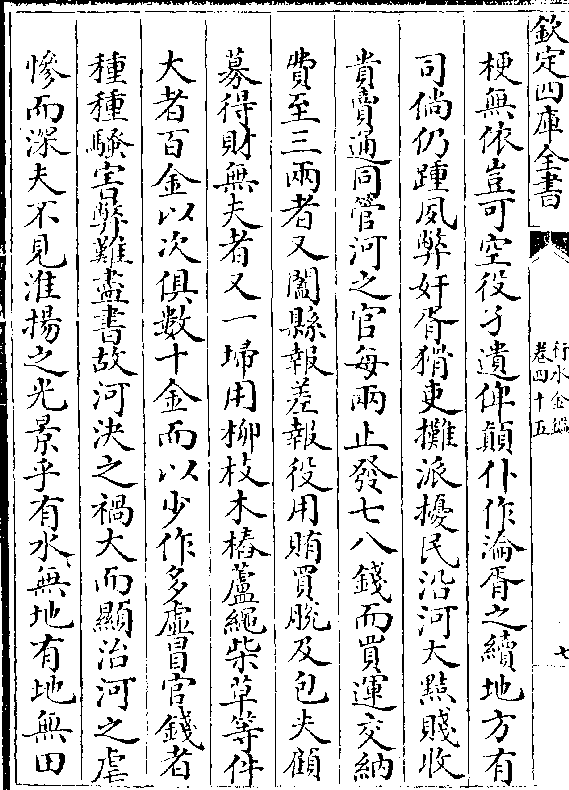 欽定四庫全書
行水金鑑
卷四十五
七
梗無依豈可空役孑遺俾顛仆作淪胥之續地方有
司倘仍踵夙弊奸胥猾吏攤派擾民沿河大㸃賤收
貴賣通同管河之官每兩止發七八錢而買運交納
費至三兩者又闔縣報差報役用賄買脫及包夫顧
募得財無夫者又一埽用柳枝木樁蘆繩柴草等件
大者百金以次俱數十金而以少作多虛冒官錢者
種種騷害弊難盡書故河決之禍大而顯治河之虐
慘而深夫不見淮揚之光景乎有水無地有地無田